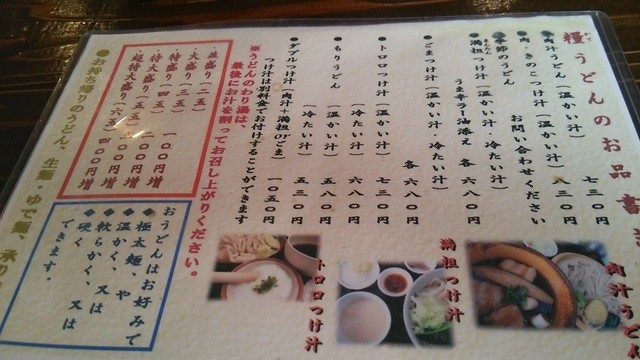 糧うどんのお品書
●肉汁うどん（温かい汁） 七三〇円
●肉・きのこつけ汁（温かい汁） 八三〇円
●季節のうどん お問い合わせください
●満祖つけ汁（温かい汁・冷たい汁）
うま辛ラー油添え 各六八〇円
●ごまつけ汁（温かい汁・冷たい汁）
各六八〇円
●トロロつけ汁（温かい汁） 七三〇円
（冷たい汁） 六八〇円
●もりうどん（温かい汁） 五八〇円
（冷たい汁） 五三〇円
●ダブルつけ汁（肉汁＋満祖orごま） 一〇五〇円
つけ汁は別料金でお付けすることができます
※うどんのわり湯は、
最後にお汁を割ってお召し上がりください。
・並盛り（二五）
・大盛り（三五） 一〇〇円増
・特盛り（四五） 二〇〇円増
・特大盛り（五五） 三〇〇円増
・超特大盛り（六五） 四〇〇円増
おうどんはお好みで
◆極太麺、や
◆温かく、又は
◆軟らかく、又は
◆硬く 又は
できます。
●お持ち帰りのうどん、生麺・ゆで麺、承り
肉汁うどん
満祖つけ汁
トロロつけ汁